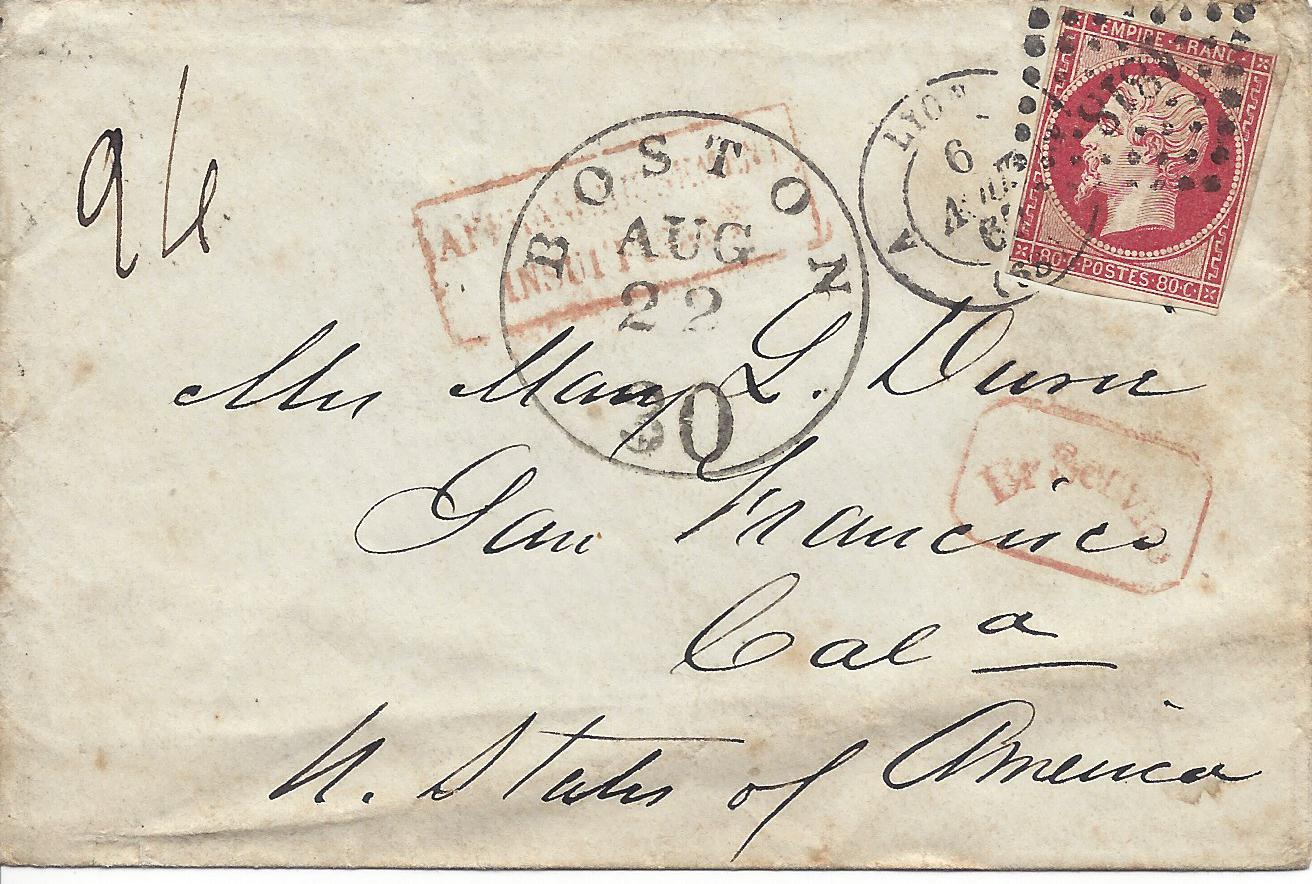 EMPIRE FRANC
80 POSTES 80 C
LYON
6
AOUT
(68)
24
AFFRANCHISSEMENT
INSUFFISANT
BOSTON
AUG
22
30
Mrs Mary L.
San Francisco
Cala
U. States of America
Br Service